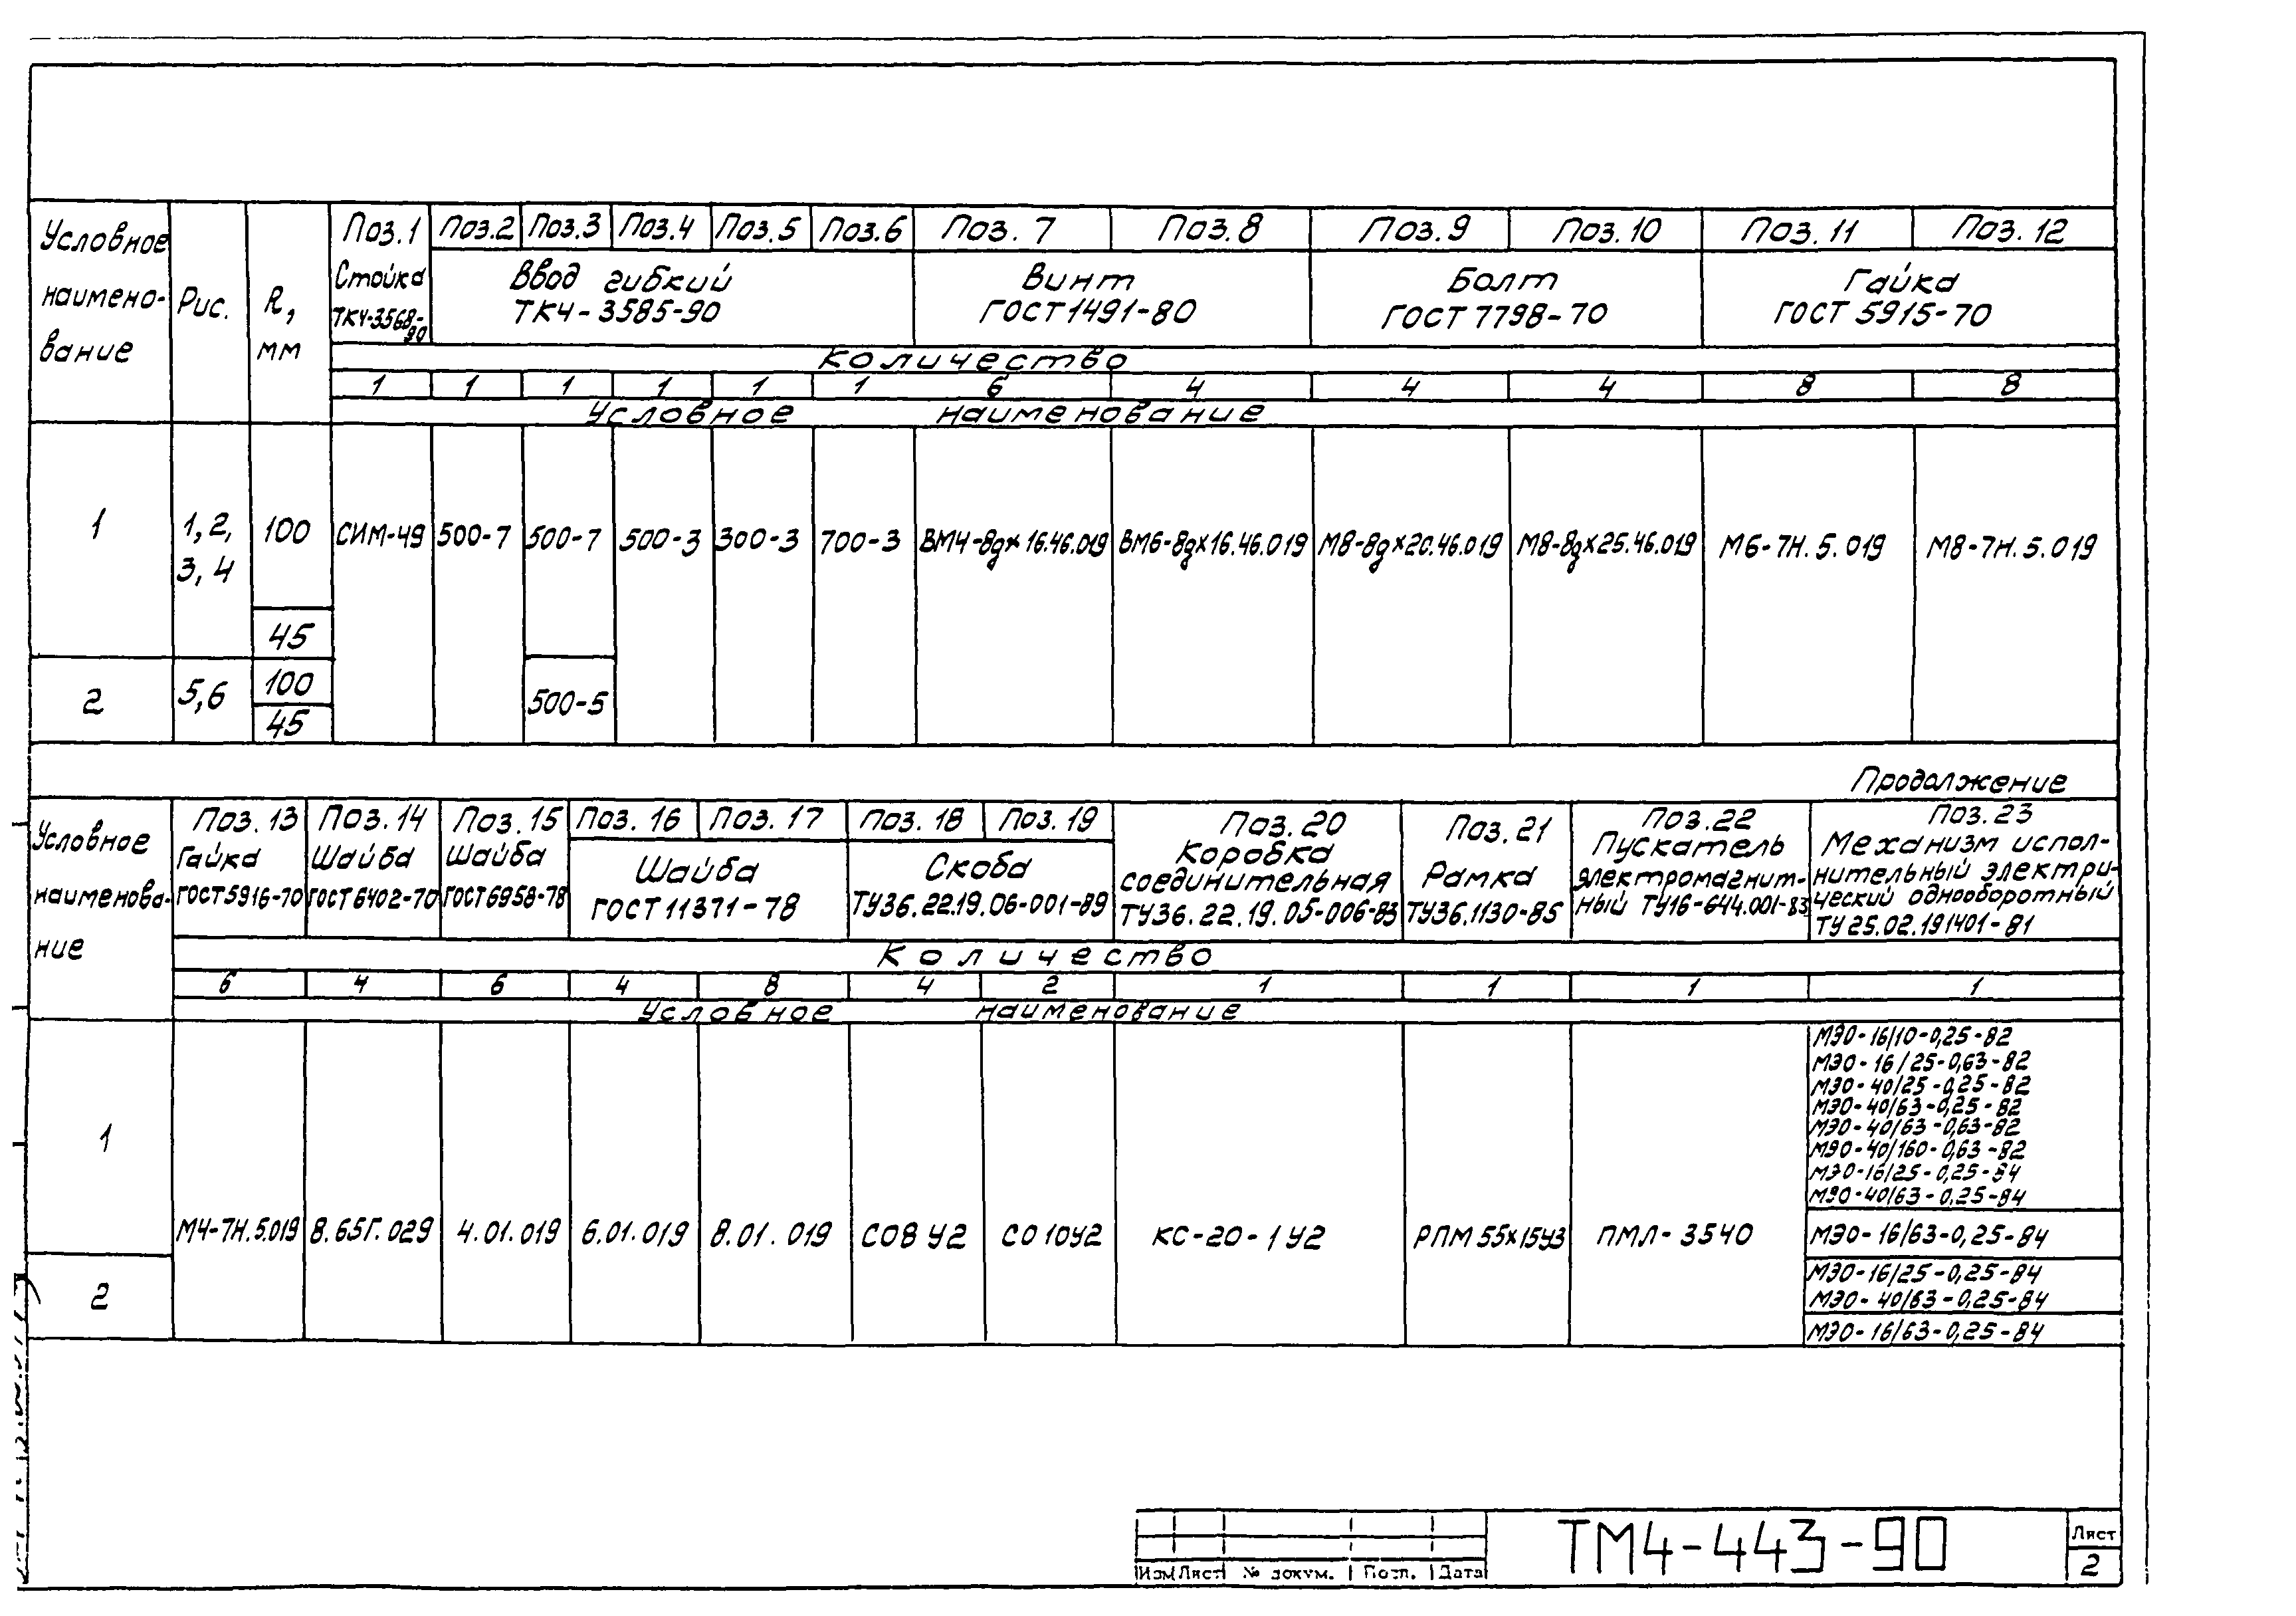 Условное наимено- вание
Рис.
R, мм
Поз.1 Поз.2 Поз.3 Поз.4 Поз.5 Поз.6 Поз. 7 Поз.8 Поз.9 Поз.10 Поз. 11 Поз. 12
Стойка ТК4-3568-90
Ввод гибкий ТК4-3585-90
Винт ГОСТ 1491-80
Болт ГОСТ 7798-70
Гайка ГОСТ 5915-70
Количество
1 1 1 1 1 1 6 4 4 4 8 8
Условное наименование
1
1, 2, 3, 4
100
СИМ-49 500-7 500-7 500-3 300-3 700-3 ВМ4-8gх16.46.019 ВМ6-8gх16.46.019 М8-8gх20.46.019 М8-8gх25.46.019 М6-7Н.5.019 М8-7Н.5.019
45
2
5,6
100
45
500-5
Продолжение
Условное наименова- ние
Поз.13 Гайка ГОСТ5916-70
Поз.14 Шайба ГОСТ6402-70
Поз.15 Шайба ГОСТ6958-78
Поз. 16 Поз. 17
Шайба ГОСТ 11371-78
Поз. 18 Поз. 19
Скоба ТУ36.22.19.06-001-89
Поз.20 Коробка соединительная ТУ36.22.19.05-006-83
Поз.21 Рамка ТУ36.1130-85
Поз.22 Пускатель электромагнит- ный ТУ16-644.001-83
Поз.23 Механизм испол- нительный электри- ческий однооборотный ТУ25.02.191401-81
Количество
6 4 6 4 8 4 2 1 1 1 1
Условное наименование
1
МЭО-16/10-0,25-82
МЭО-16/25-0,63-82
МЭО-40/25-0,25-82
МЭО-40/63-0,25-82
МЭО-40/63-0,63-82
МЭО-40/160-0,63-82
МЭО-16/25-0,25-84
МЭО-40/63-0,25-84
М4-7Н.5.019 8.65Г.029 4.01.019 6.01.019 8.01.019 СО8У2 СО10У2 КС-20-1У2 РПМ 55х15У3 ПМЛ-3540 МЭО-16/63-0,25-84
2
МЭО-16/25-0,25-84
МЭО-40/63-0,25-84
МЭО-16/63-0,25-84
Изм Лист № докум. Подп. Дата
ТМ4-443-90
Лист
2